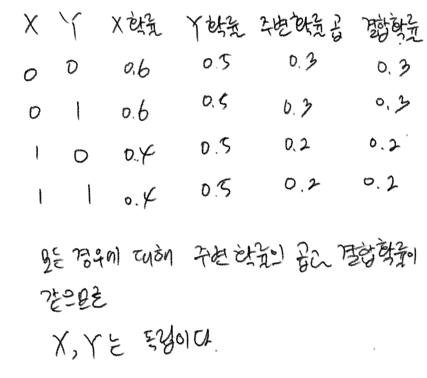 X Y X확률 Y확률 주변확률곱 결합확률
0 0 0.6 0.5 0.3 0.3
0 1 0.6 0.5 0.3 0.3
1 0 0.4 0.5 0.2 0.2
1 1 0.4 0.5 0.2 0.2
모든 경우에 대해 주변확률의 곱과 결합확률이
같으므로
X, Y는 독립이다.